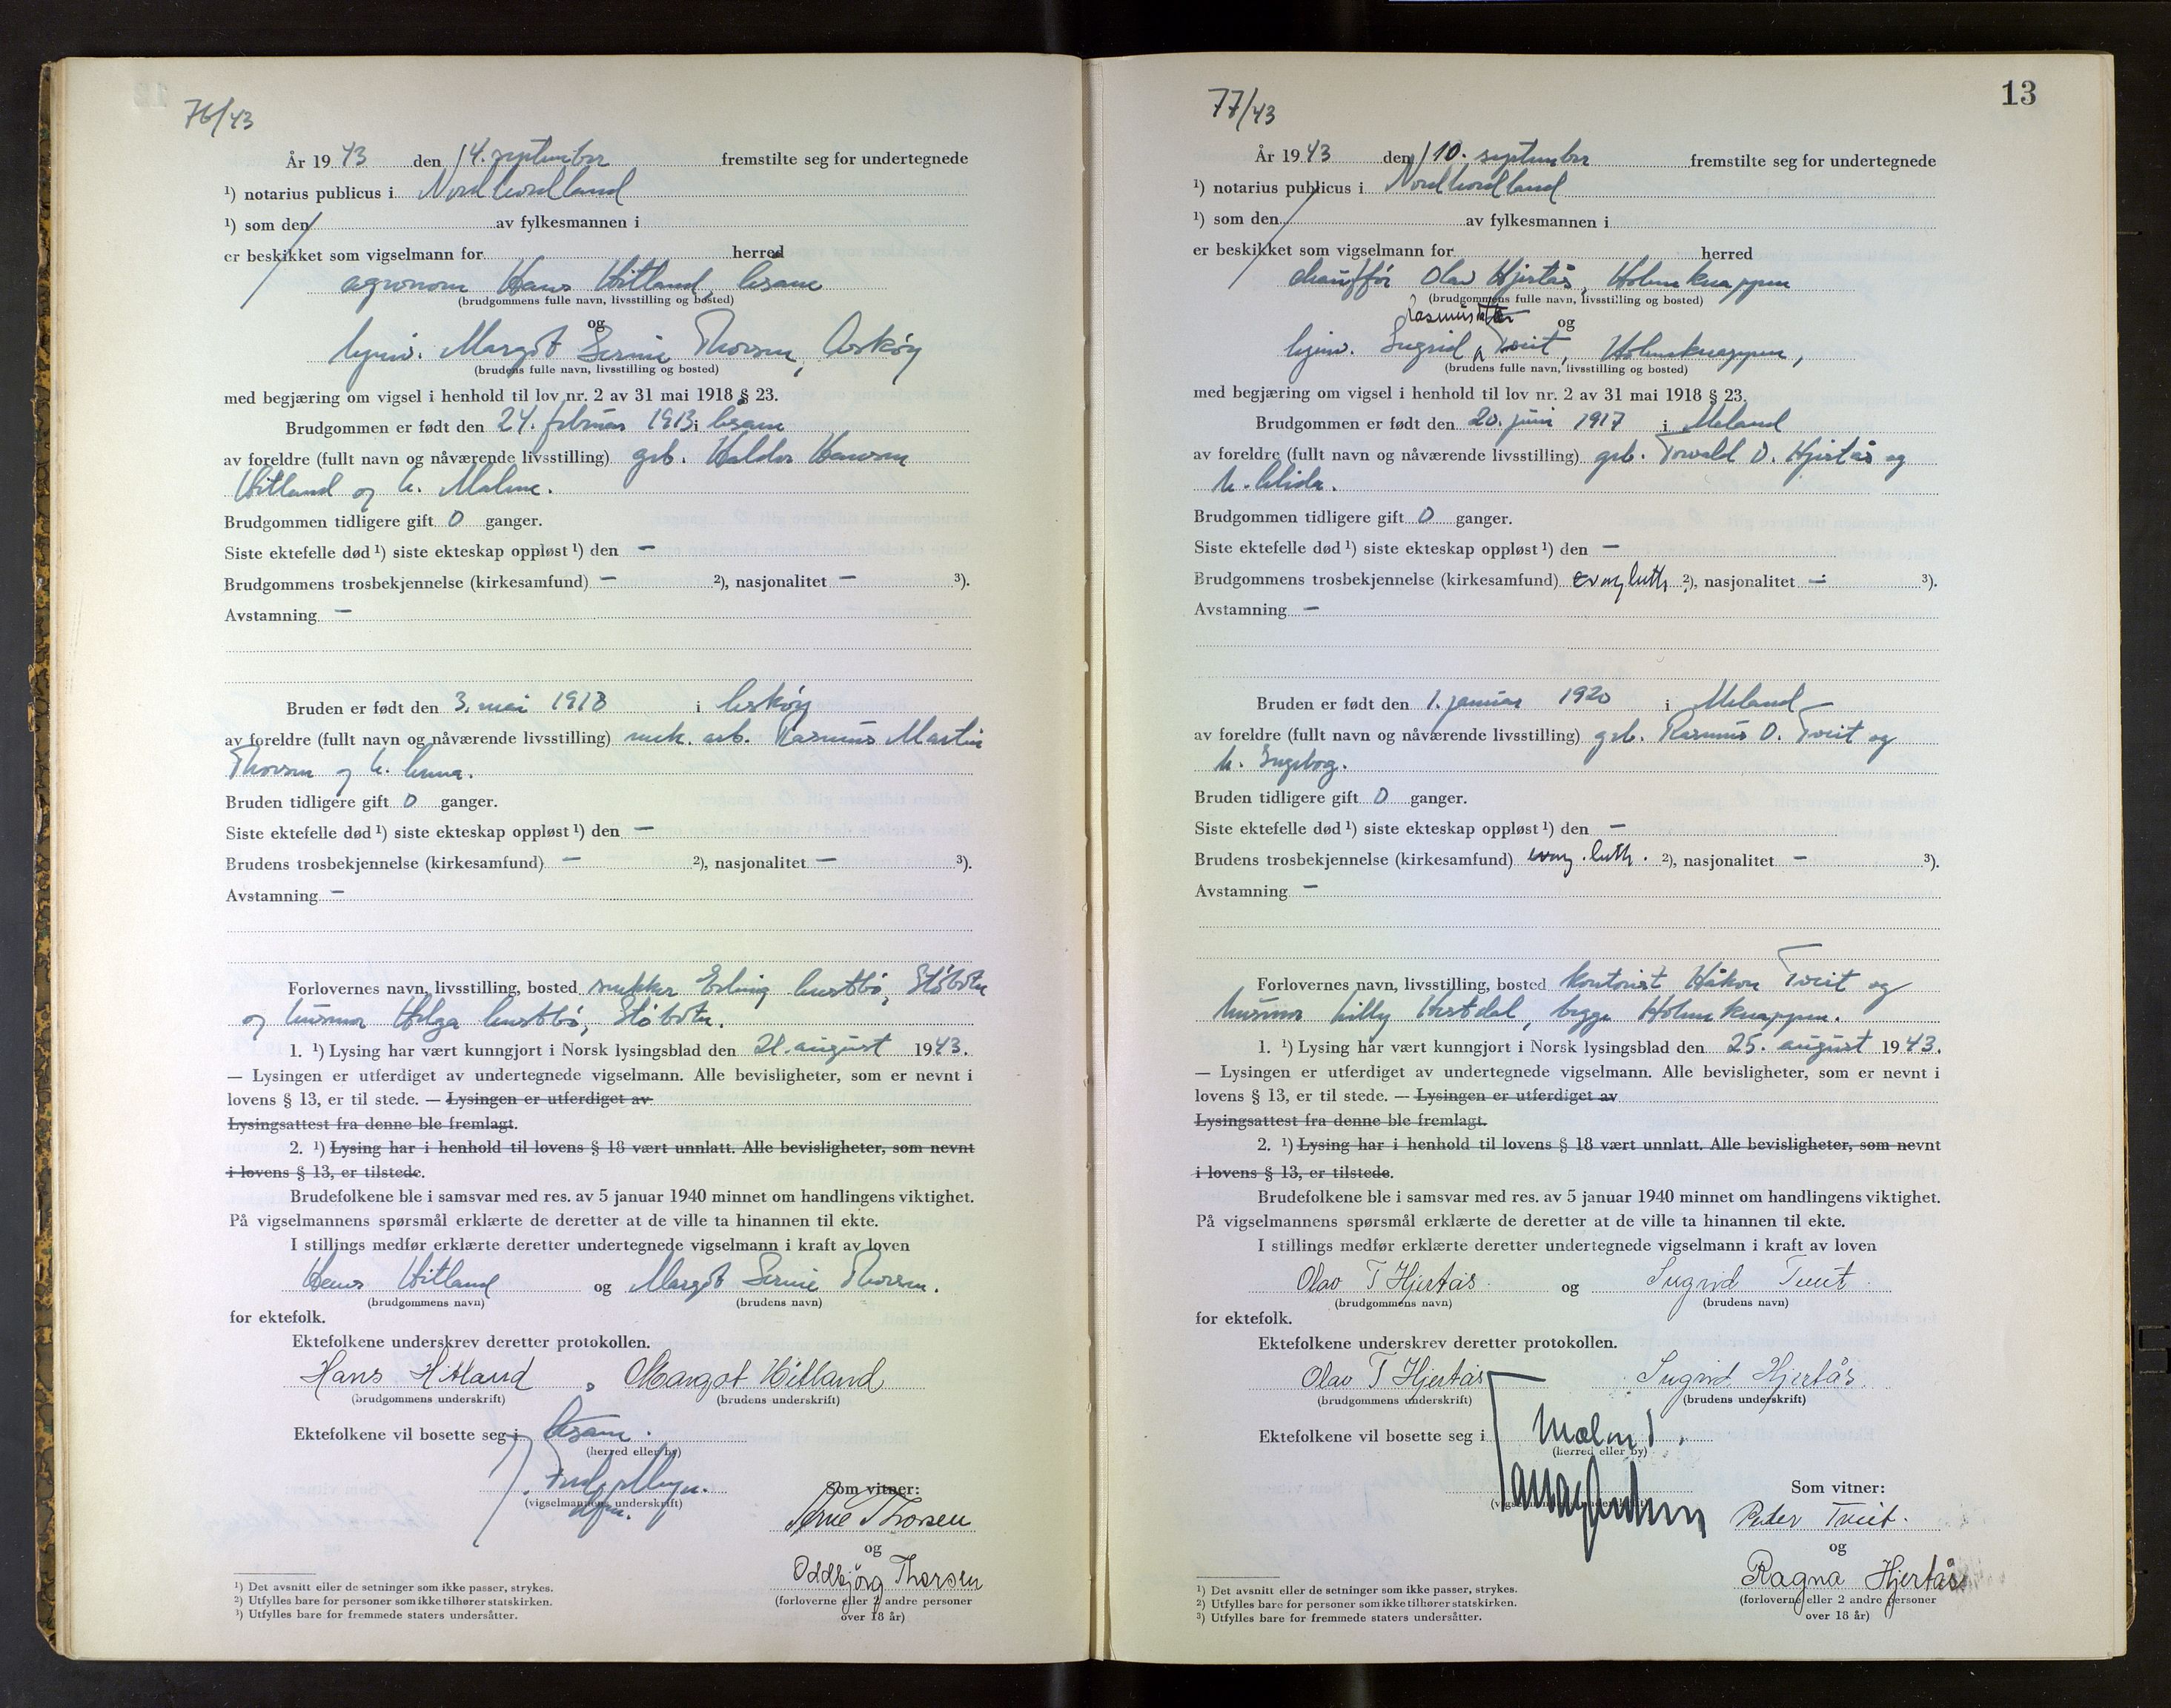 76/43
År 1943 den 14. september fremstilte seg for undertegnede
¹) notarius publicus i Nordhordland
¹) som den av fylkesmannen i
er beskikket som vigselmann for herred
agronom Hans Hitland, Åsane
(brudgommens fulle navn, livsstilling og bosted)
og
hjemv. Margot Serine Thorsen, Askøy
(brudens fulle navn, livsstilling og bosted)
med begjæring om vigsel i henhold til lov nr. 2 av 31 mai 1918 § 23.
Brudgommen er født den 24. februar 1913 i Åsane
av foreldre (fullt navn og nåværende livsstilling) grb. Haldor Hansen
Hitland og h. Malene.
Brudgommen tidligere gift 0 ganger.
Siste ektefelle død ¹) siste ekteskap oppløst ¹) den —
Brudgommens trosbekjennelse (kirkesamfund) — ²), nasjonalitet — ³).
Avstamning —
Bruden er født den 3. mai 1918 i Askøy
av foreldre (fullt navn og nåværende livsstilling) mek. arb. Rasmus Martin
Thorsen og h. Anna.
Bruden tidligere gift 0 ganger.
Siste ektefelle død ¹) siste ekteskap oppløst ¹) den —
Brudens trosbekjennelse (kirkesamfund) — ²), nasjonalitet — ³).
Avstamning —
Forlovernes navn, livsstilling, bosted snekker Erling Austbø, Støbotn
og husmor Helga Austbø, Støbotn.
1. ¹) Lysing har vært kunngjort i Norsk lysingsblad den 21. august 1943.
— Lysingen er utferdiget av undertegnede vigselmann. Alle bevisligheter, som er nevnt i
lovens § 13, er til stede. — Lysingen er utferdiget av
Lysingsattest fra denne ble fremlagt.
2. ¹) Lysing har i henhold til lovens § 18 vært unnlatt. Alle bevisligheter, som nevnt
i lovens § 13, er tilstede.
Brudefolkene ble i samsvar med res. av 5 januar 1940 minnet om handlingens viktighet.
På vigselmannens spørsmål erklærte de deretter at de ville ta hinannen til ekte.
I stillings medfør erklærte deretter undertegnede vigselmann i kraft av loven
Hans Hitland og Margot Serine Thorsen.
(brudgommens navn) (brudens navn)
for ektefolk.
Ektefolkene underskrev deretter protokollen.
Hans Hitland, Margot Hitland
(brudgommens underskrift) (brudens underskrift)
Ektefolkene vil bosette seg i Åsane.
(herred eller by)
(vigselmannens underskrift)
Som vitner:
Arne Thorsen
og
Oddbjörg Thorsen
(forloverne eller 2 andre personer
over 18 år)
¹) Det avsnitt eller de setninger som ikke passer, strykes.
²) Utfylles bare for personer som ikke tilhører statskirken.
³) Utfylles bare for fremmede staters undersåtter.
13
77/43
År 1943 den 10. september fremstilte seg for undertegnede
¹) notarius publicus i Nordhordland
¹) som den av fylkesmannen i
er beskikket som vigselmann for herred
chauffør Olav Hjertås, Holmeknappen
(brudgommens fulle navn, livsstilling og bosted)
og
hjemv. Ingrid Tveit, Holmeknappen,
(brudens fulle navn, livsstilling og bosted)
med begjæring om vigsel i henhold til lov nr. 2 av 31 mai 1918 § 23.
Brudgommen er født den 20. juni 1917 i Meland
av foreldre (fullt navn og nåværende livsstilling) grb. Torvald O. Hjertås og
h. Alida.
Brudgommen tidligere gift 0 ganger.
Siste ektefelle død ¹) siste ekteskap oppløst ¹) den —
Brudgommens trosbekjennelse (kirkesamfund) evang luth. ²), nasjonalitet — ³).
Avstamning —
Bruden er født den 1. januar 1920 i Meland
av foreldre (fullt navn og nåværende livsstilling) grb. Rasmus O. Tveit og
h. Ingebog.
Bruden tidligere gift 0 ganger.
Siste ektefelle død ¹) siste ekteskap oppløst ¹) den —
Brudens trosbekjennelse (kirkesamfund) evang. luth. ²), nasjonalitet — ³).
Avstamning —
Forlovernes navn, livsstilling, bosted kontorist Håkon Tveit og
husmor Lilly Hestdal, begge Holmeknappen.
1. ¹) Lysing har vært kunngjort i Norsk lysingsblad den 25. august 1943.
— Lysingen er utferdiget av undertegnede vigselmann. Alle bevisligheter, som er nevnt i
lovens § 13, er til stede. — Lysingen er utferdiget av
Lysingsattest fra denne ble fremlagt.
2. ¹) Lysing har i henhold til lovens § 18 vært unnlatt. Alle bevisligheter, som nevnt
i lovens § 13, er tilstede.
Brudefolkene ble i samsvar med res. av 5 januar 1940 minnet om handlingens viktighet.
På vigselmannens spørsmål erklærte de deretter at de ville ta hinannen til ekte.
I stillings medfør erklærte deretter undertegnede vigselmann i kraft av loven
Olav T Hjertås og Ingrid Tveit.
(brudgommens navn) (brudens navn)
for ektefolk.
Ektefolkene underskrev deretter protokollen.
Olav T Hjertås Ingrid Hjertås.
(brudgommens underskrift) (brudens underskrift)
Ektefolkene vil bosette seg i
(herred eller by)
(vigselmannens underskrift)
Som vitner:
Peder Tveit.
og
Ragna Hjertås
(forloverne eller 2 andre personer
over 18 år)
¹) Det avsnitt eller de setninger som ikke passer, strykes.
²) Utfylles bare for personer som ikke tilhører statskirken.
³) Utfylles bare for fremmede staters undersåtter.